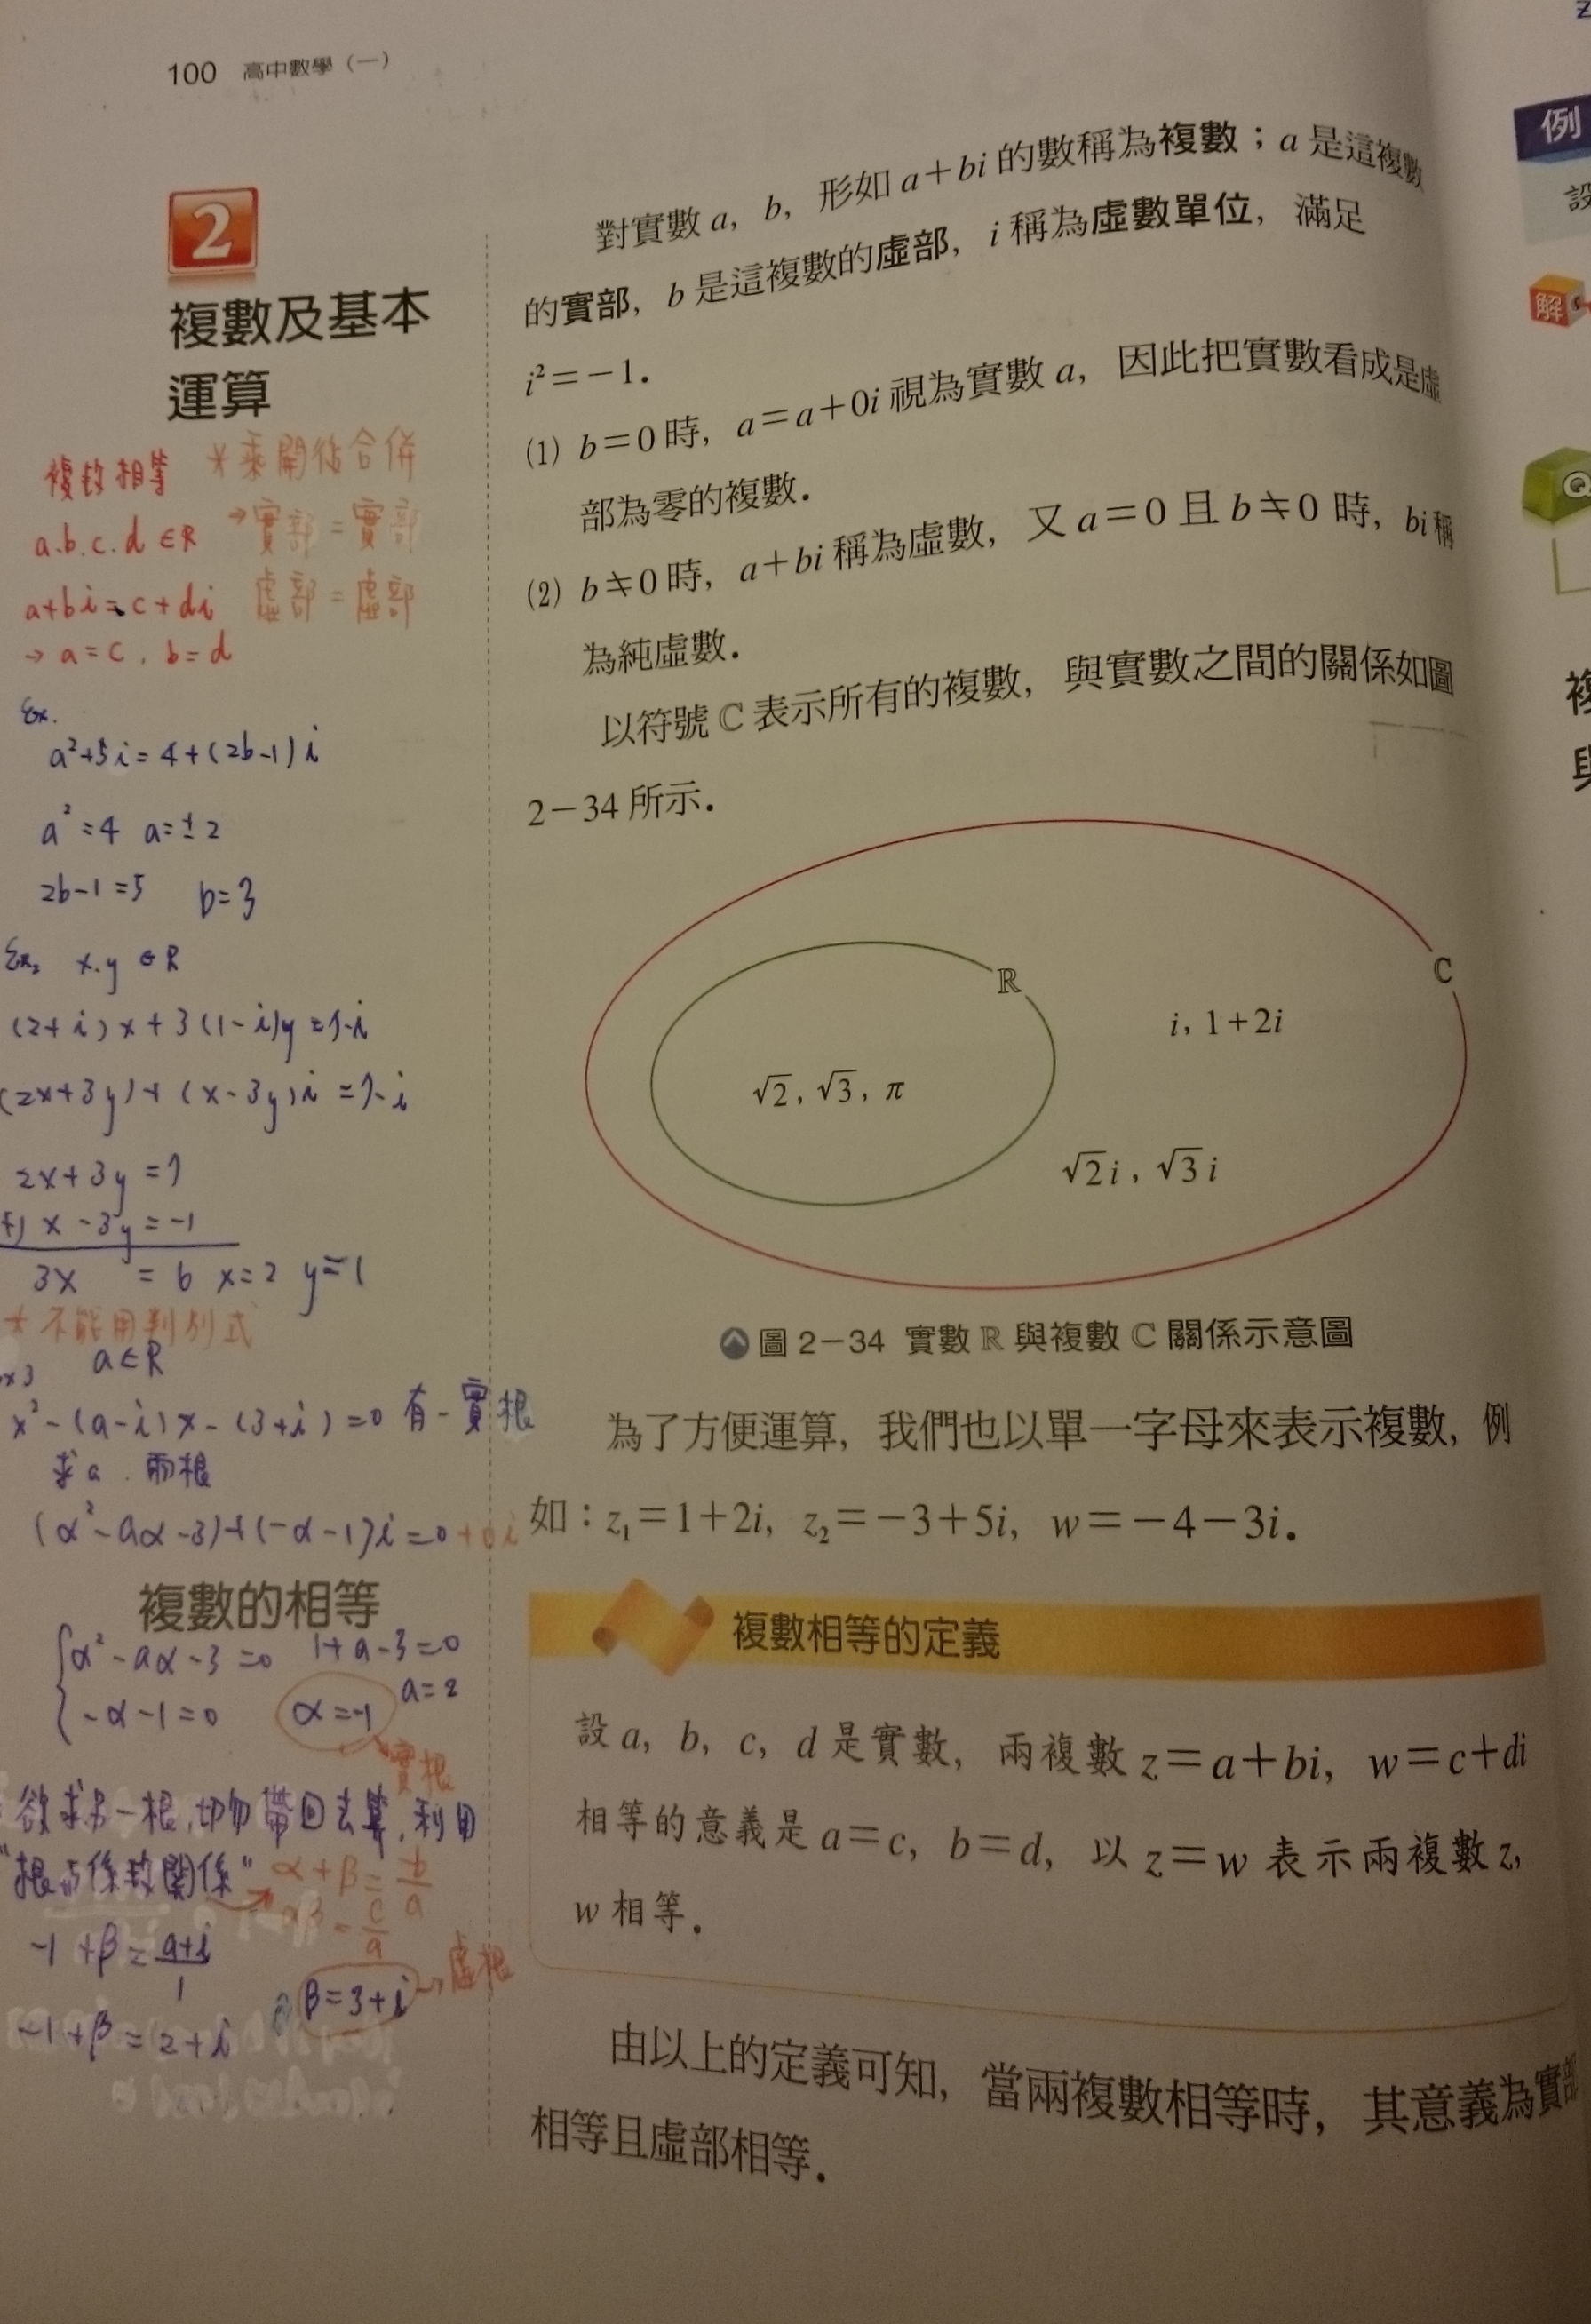 100 高中數學（一）
2
複數及基本
運算
複數相等
a.b.c.d ∈R
a+bi=c+di
→ a=c, b=d
*乘開後合併
→實部=實部
虛部=虛部
Ex.
a²+5i=4+(2b-1)i
a²=4 a=±2
2b-1=5 b=3
Ex2 x.y ∈R
(2+i)x+3(1-i)y=7-i
(2x+3y)+(x-3y)i=7-i
2x+3y=7
+) x-3y=-1
3x =6 x=2 y=1
*不能用判別式
x3 a∈R
x²-(a-i)x-(3+i)=0 有一實根
求a. 兩根
(α²-aα-3)+(-α-1)i=0+0i
複數的相等
α²-aα-3=0 1+a-3=0
-α-1=0 α=-1 a=2
實根
欲求另一根,切勿帶回去算,利用
"根與係數關係"
α+β=-b/a
αβ=c/a
-1+β=a+i/1
β=3+i→虛根
-1+β=2+i
對實數 a，b，形如 a＋bi 的數稱為複數；a 是這複數
的實部，b 是這複數的虛部，i 稱為虛數單位，滿足
i²＝－1．
(1) b＝0 時，a＝a＋0i 視為實數 a，因此把實數看成是虛
部為零的複數．
(2) b≠0 時，a＋bi 稱為虛數，又 a＝0 且 b≠0 時，bi 稱
為純虛數．
以符號 ℂ 表示所有的複數，與實數之間的關係如圖
2－34 所示．
ℝ
ℂ
i，1＋2i
√2，√3，π
√2 i，√3 i
圖 2－34 實數 ℝ 與複數 ℂ 關係示意圖
為了方便運算，我們也以單一字母來表示複數，例
如：z₁＝1＋2i，z₂＝－3＋5i，w＝－4－3i．
複數相等的定義
設 a，b，c，d 是實數，兩複數 z＝a＋bi，w＝c＋di
相等的意義是 a＝c，b＝d，以 z＝w 表示兩複數 z，
w 相等．
由以上的定義可知，當兩複數相等時，其意義為實部
相等且虛部相等．
例
設
解
Q